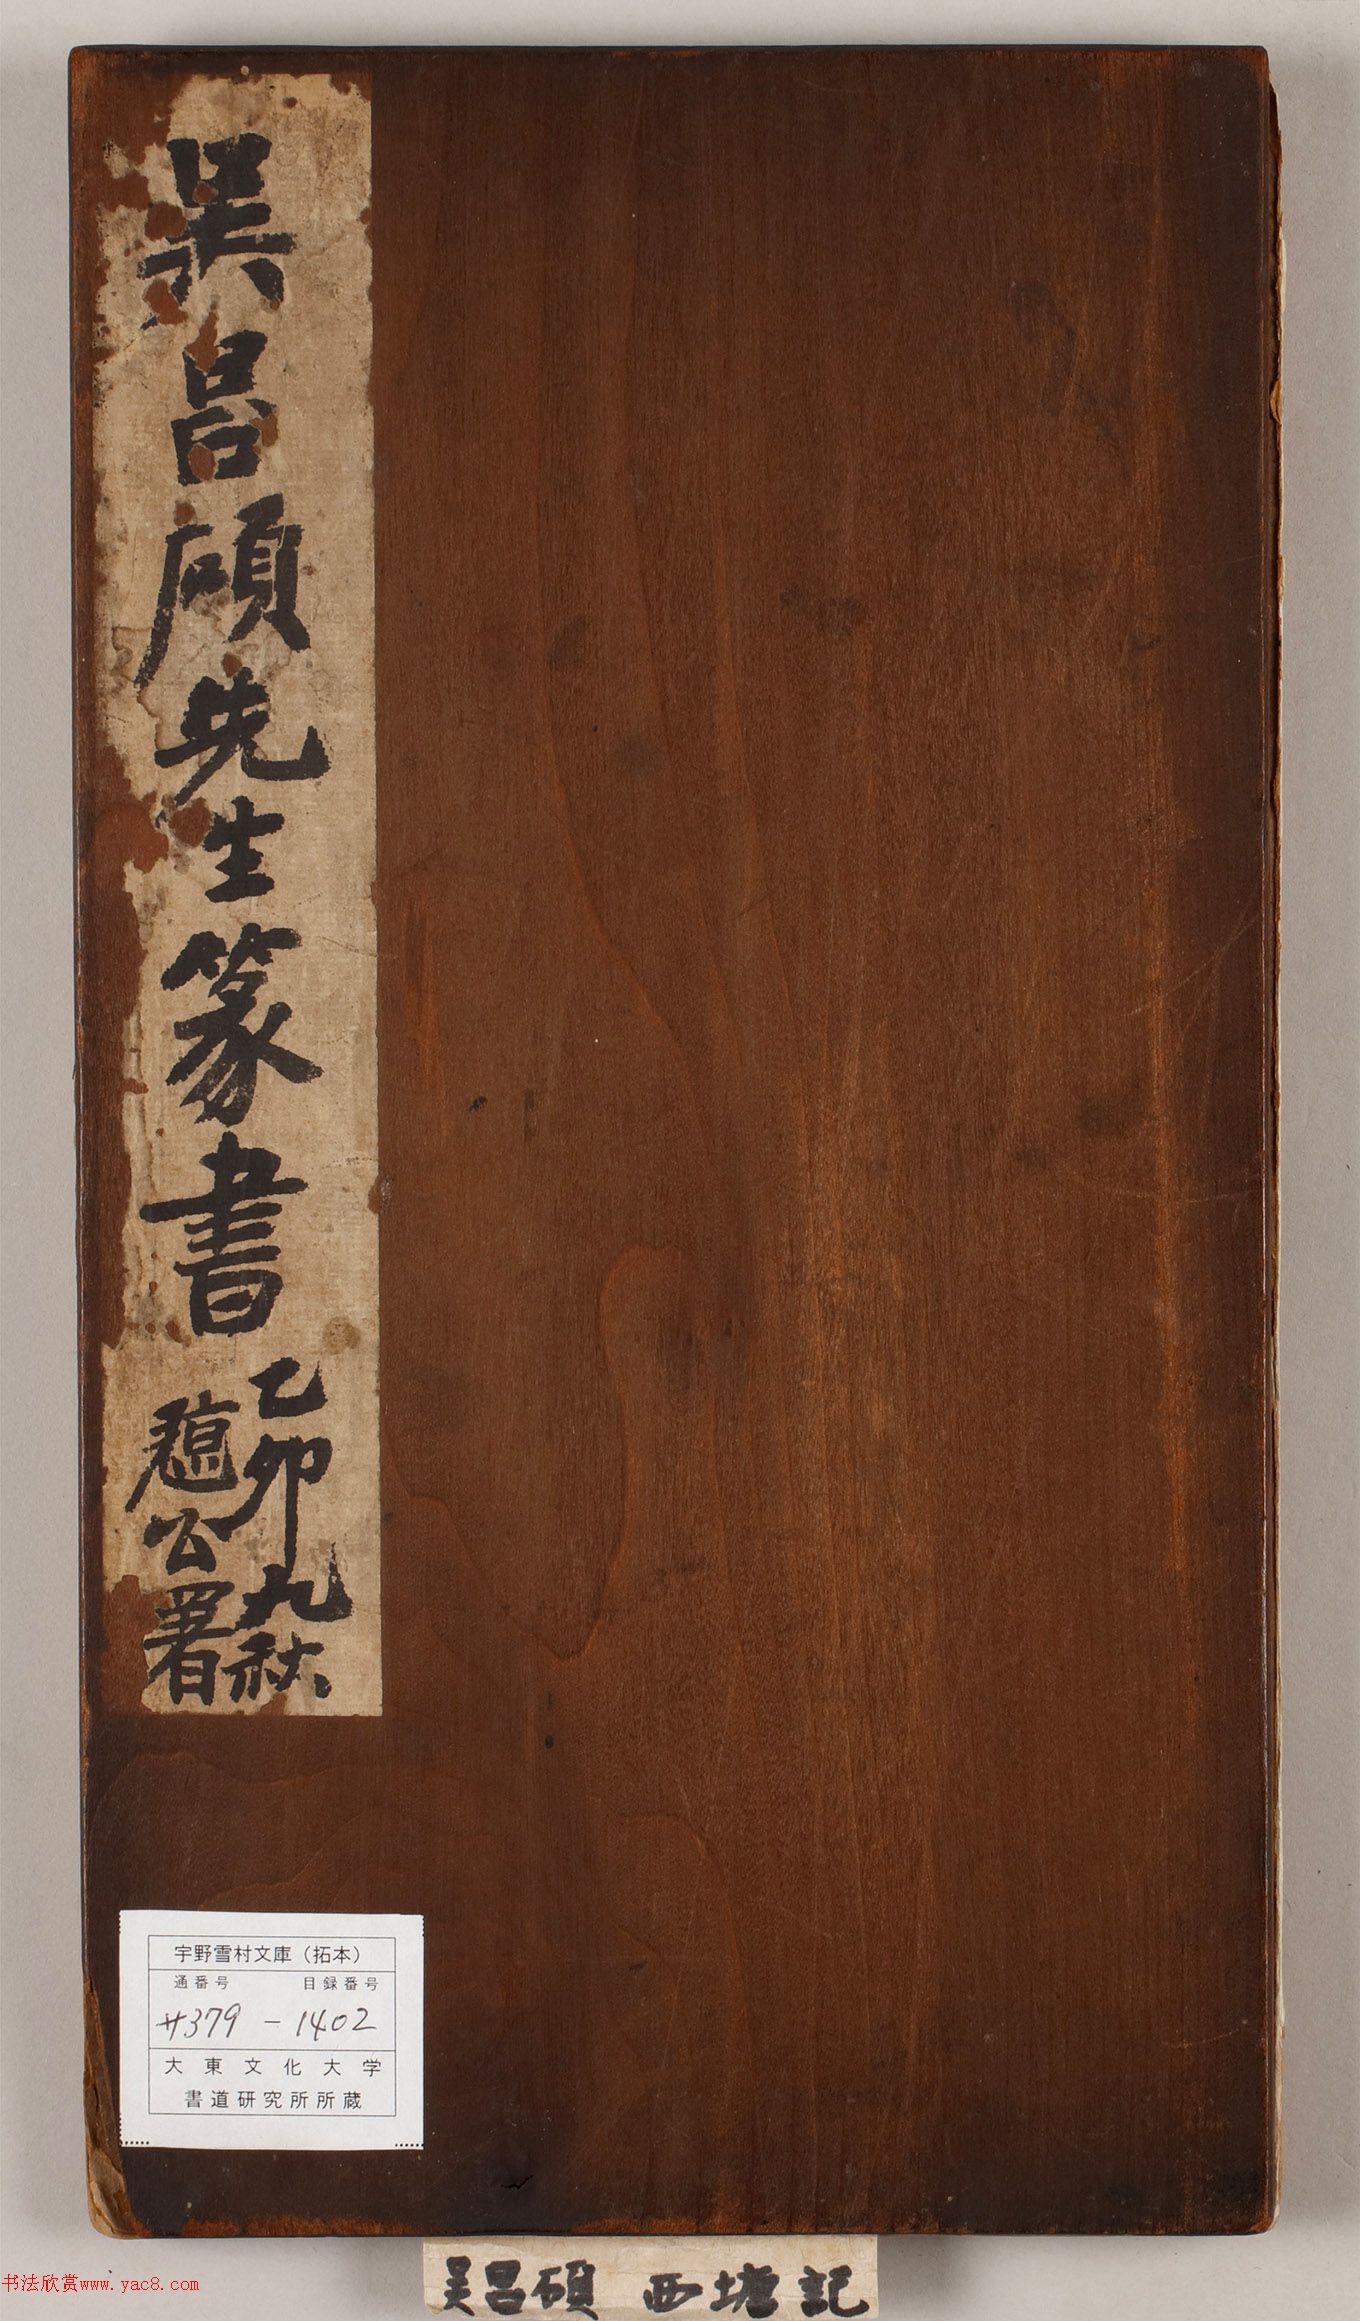 吴昌碩先生篆書
乙卯九秋
公署
宇野雪村文庫（拓本）
通番号 目録番号
サ379 - 1402
大東文化大学
書道研究所所蔵
吴昌碩 西塘記
书法欣赏www.yac8.com